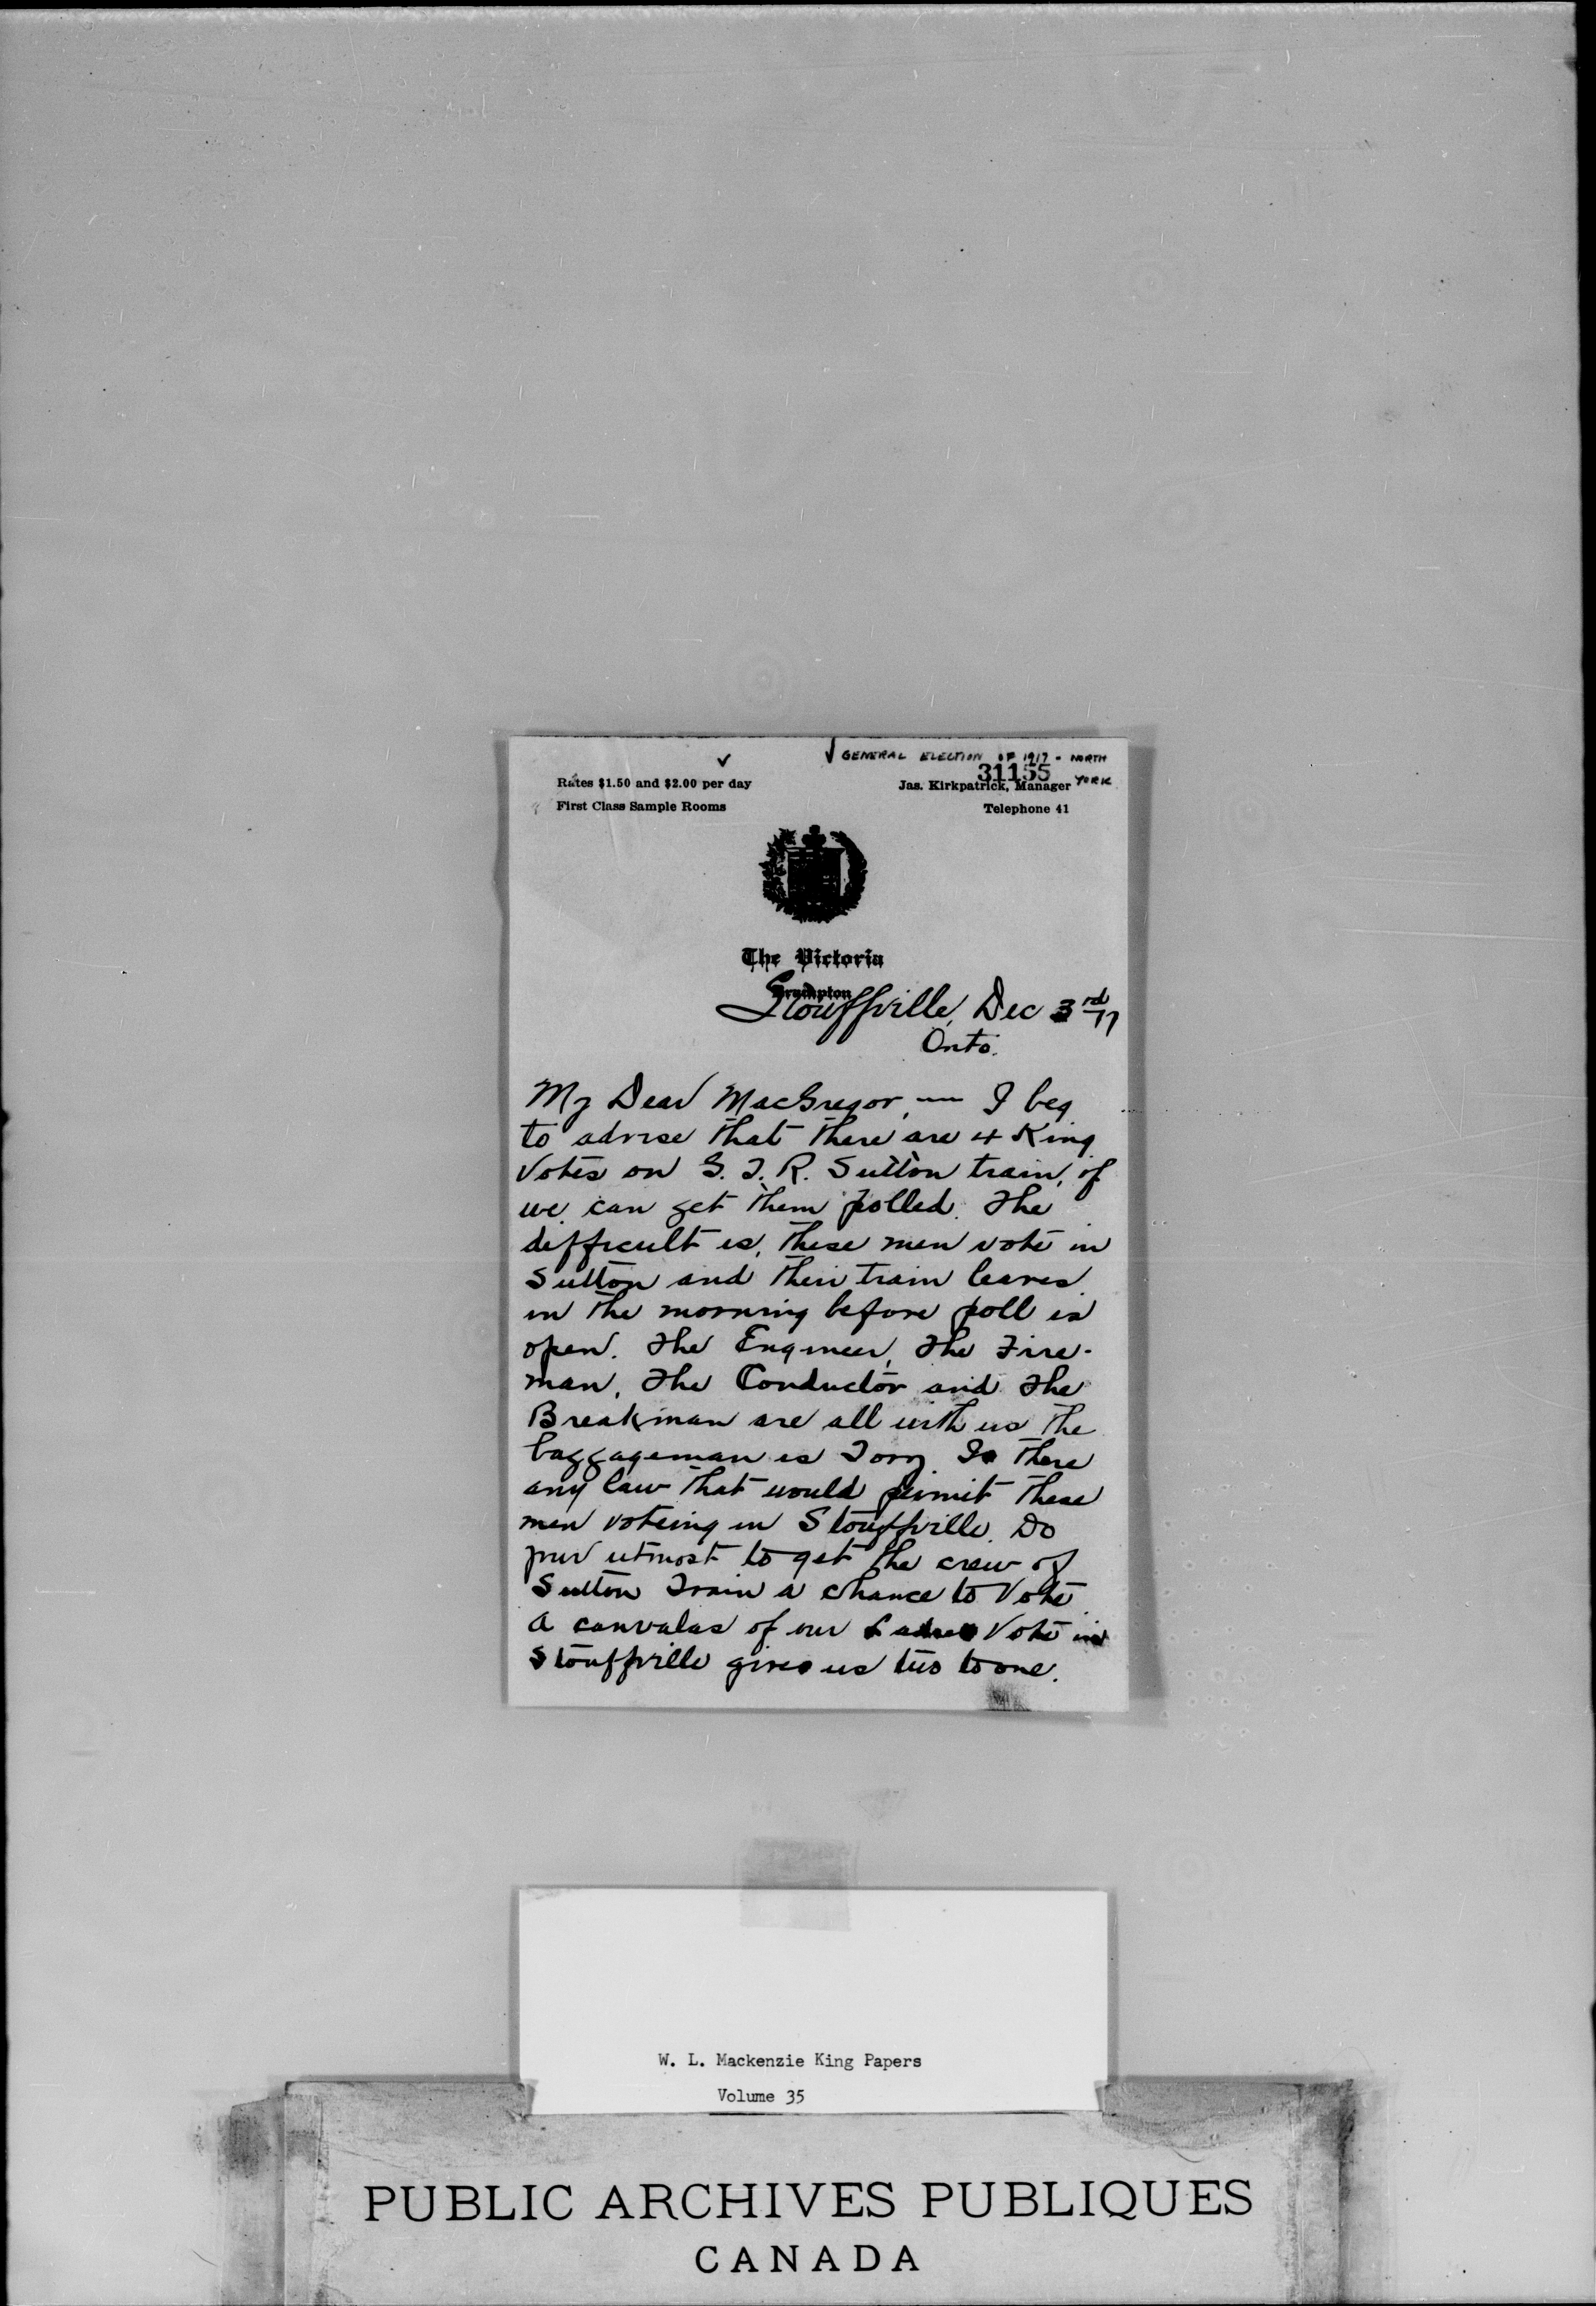 ✓ ✓ GENERAL ELECTION OF 1917 - NORTH
YORK
31155
Rates $1.50 and $2.00 per day
First Class Sample Rooms
Jas. Kirkpatrick, Manager
Telephone 41
The Victoria
Brampton
Stouffville, Dec 3rd 17
Onto.
My Dear MacGregor, — I beg
to advise that there are 4 King
Votes on G. T. R. Sutton train, if
we can get them polled. The
difficult is, these men vote in
Sutton and their train leaves
in the morning before poll is
open. The Engineer, The Fire-
man, The Conductor and The
Breakman are all with us the
baggageman is Tory. Is there
any law that would permit these
men voteing in Stouffville. Do
your utmost to get the crew of
Sutton Train a chance to Vote
A canvalas of our Ladies Vote in
Stouffville gives us two to one.
W. L. Mackenzie King Papers
Volume 35
PUBLIC ARCHIVES PUBLIQUES
CANADA